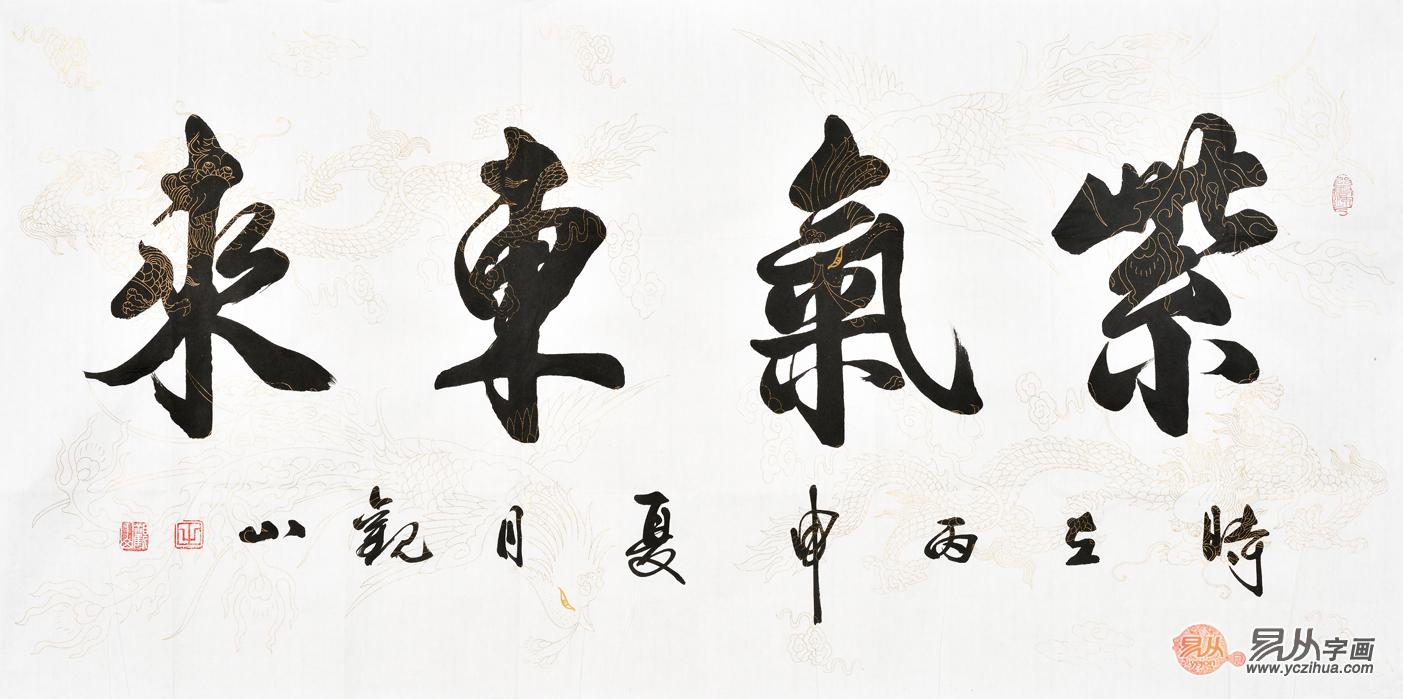 紫氣東來
時在丙申夏月觀山
易从
yczihua
易从字画
www.yczihua.com